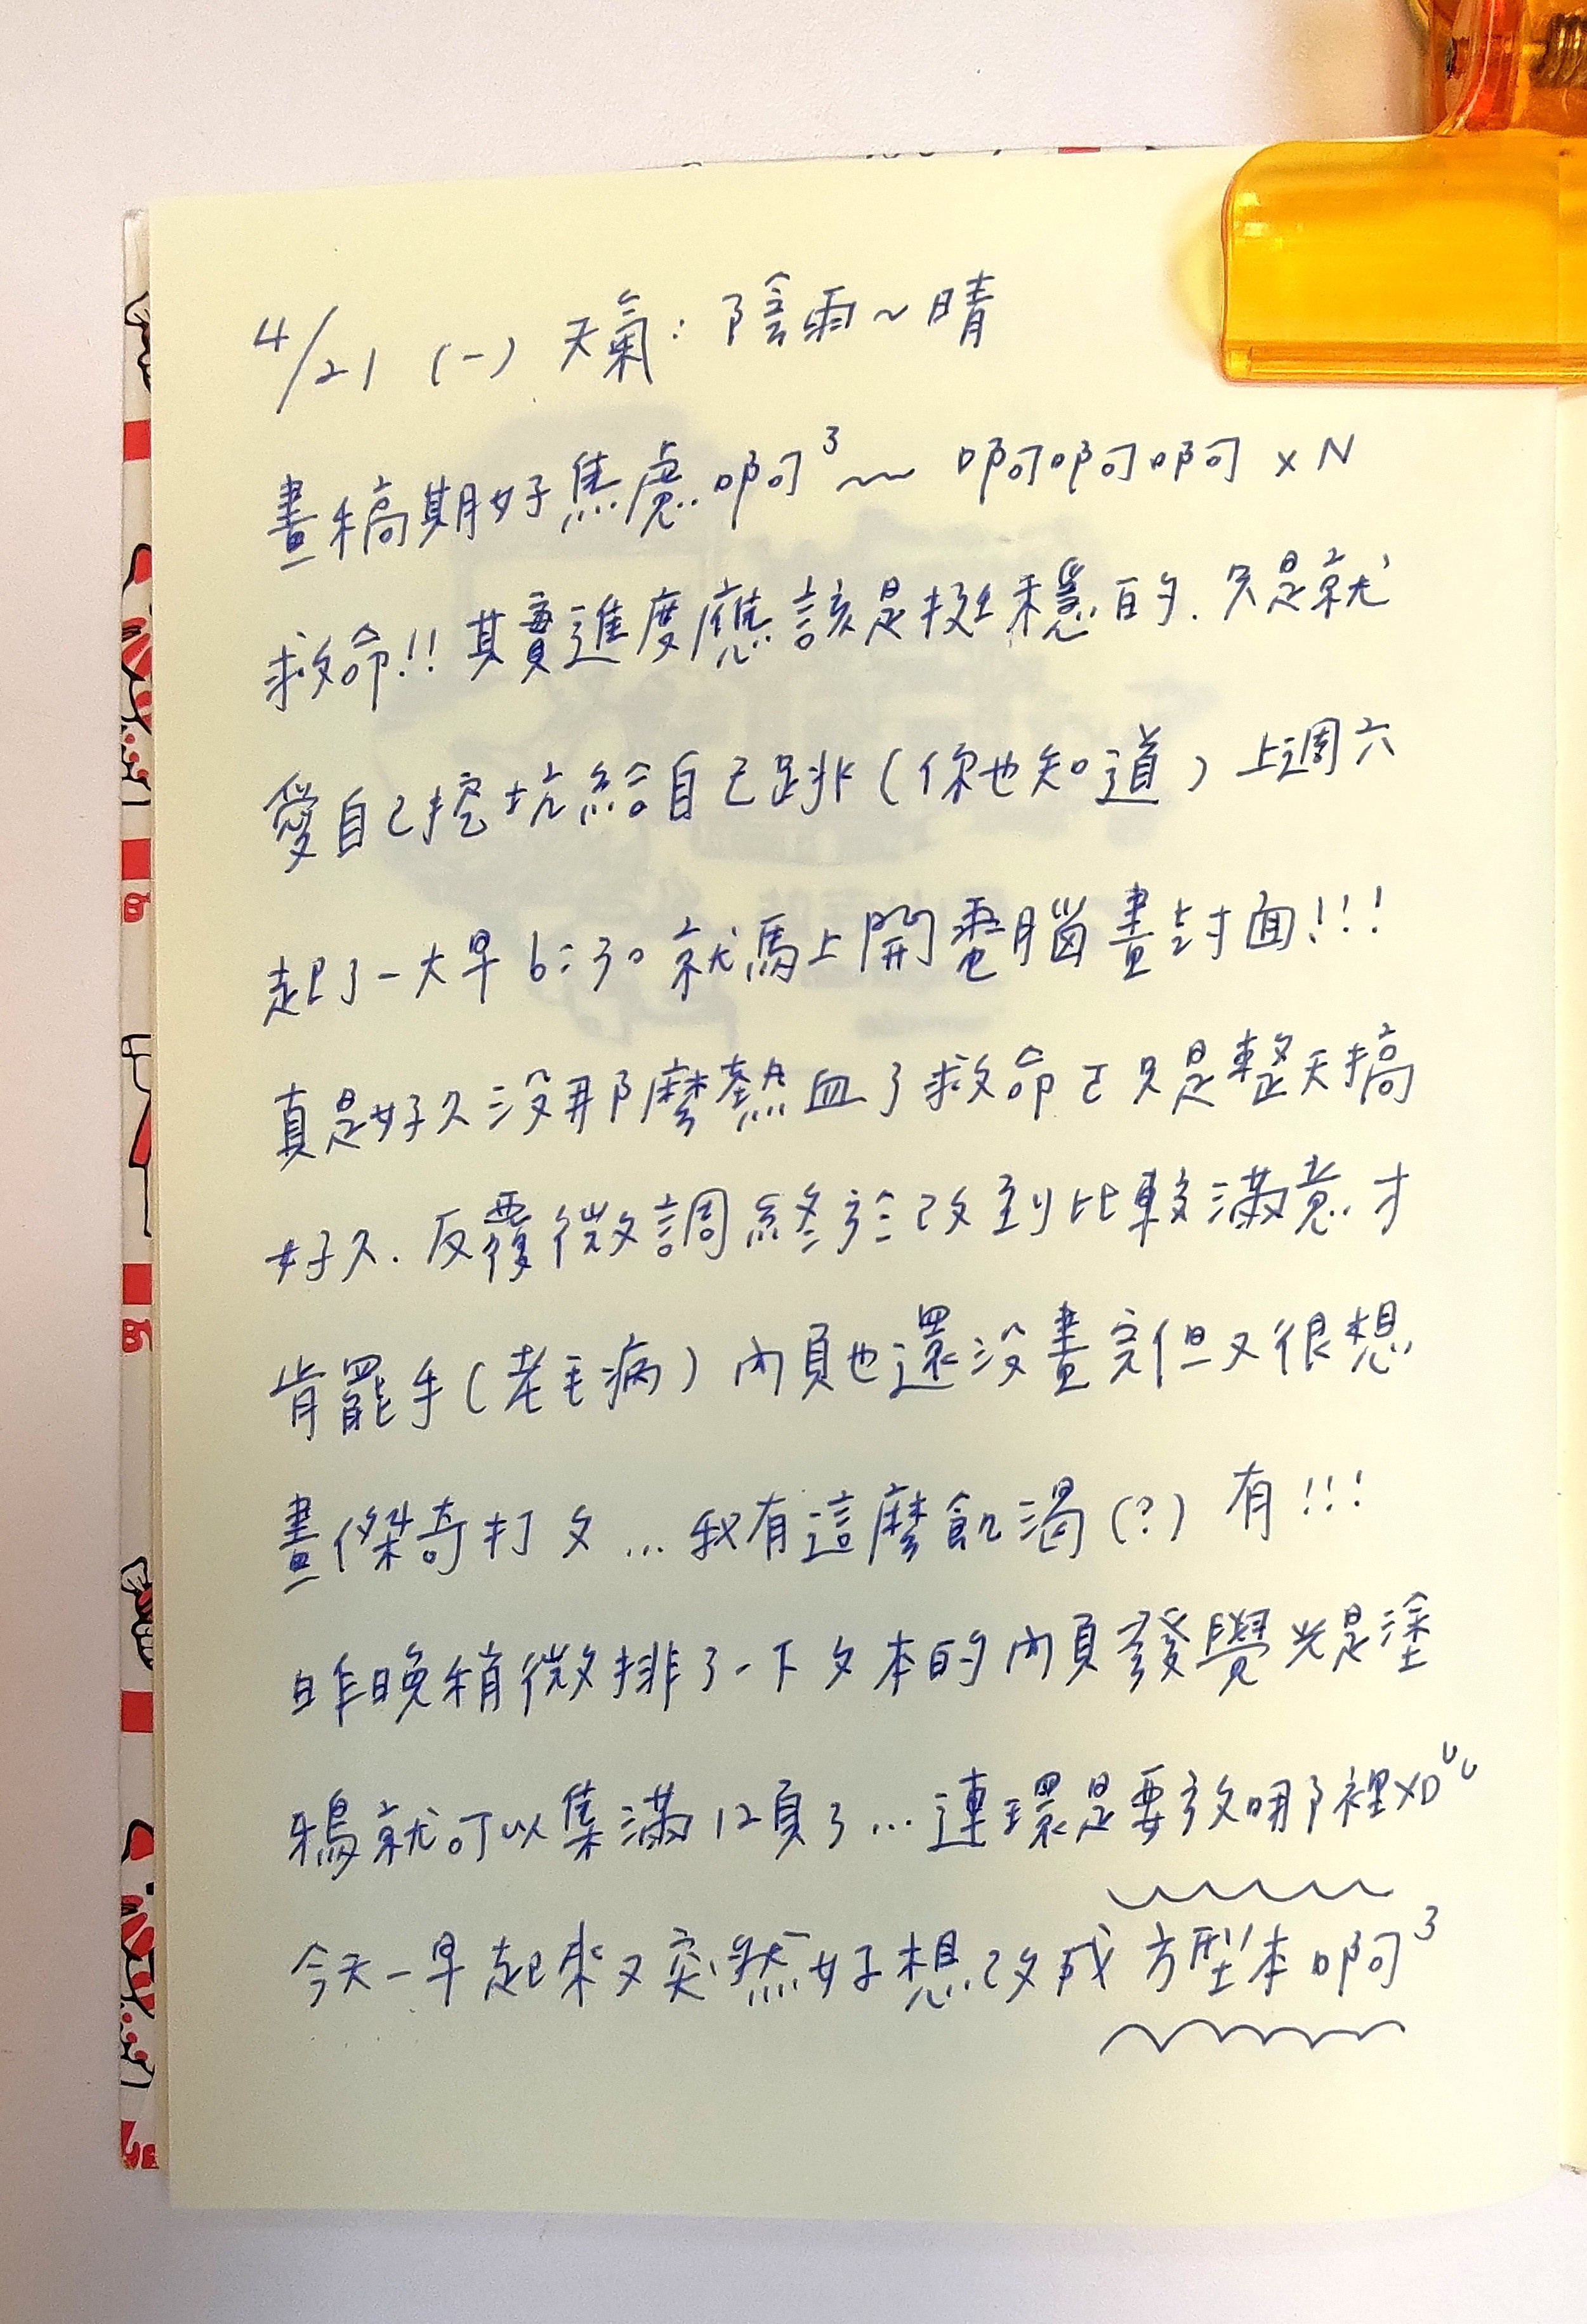 4/21 (一) 天氣：陰雨～晴
畫稿期好焦慮啊³~~ 啊啊啊 x N
救命!! 其實進度應該是挺穩的. 只是就
愛自己挖坑給自己跳(你也知道) 上週六
起了一大早6:30就馬上開電腦畫封面!!!
真是好久沒那麼熱血了救命 只是整天搞
好久. 反覆微調終於改到比較滿意才
肯罷手(老毛病) 內頁也還沒畫完但又很想
畫傑奇打文...我有這麼飢渴(?) 有!!!
昨晚稍微排了一下文本的內頁發覺光是塗
鴉就可以集滿12頁了...連環是要放哪裡XD
今天一早起來又突然好想改成方型本啊³